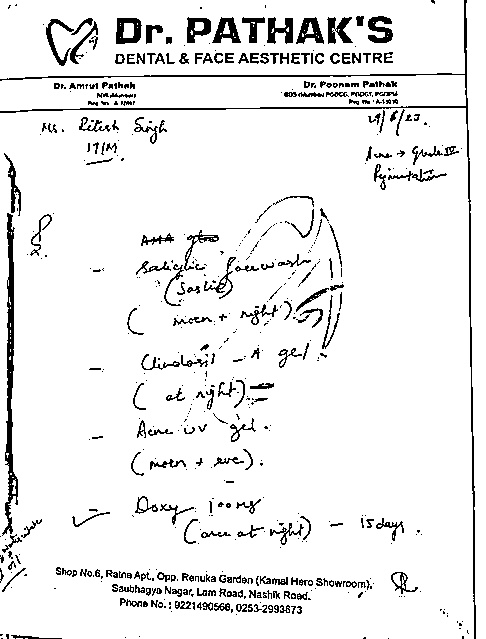 Dr. PATHAK'S
DENTAL & FACE AESTHETIC CENTRE
Dr. Amrut Pathak
Dr. Poonam Pathak
Ms. Ritesh Singh
19/M
29/6/23.
Acne → Grade IV
Pigmentation
AHA glow
- Salicylic facewash
(Saslic)
(morn + night)
- Clindasis - A gel
(at night)
- Acne UV gel.
(morn + eve).
- Doxy 100mg
(once at night) - 15 days.
Shop No.6, Ratna Apt., Opp. Renuka Garden (Kamal Hero Showroom),
Saubhagya Nagar, Lam Road, Nashik Road.
Phone No.: 9221490566, 0253-2993673